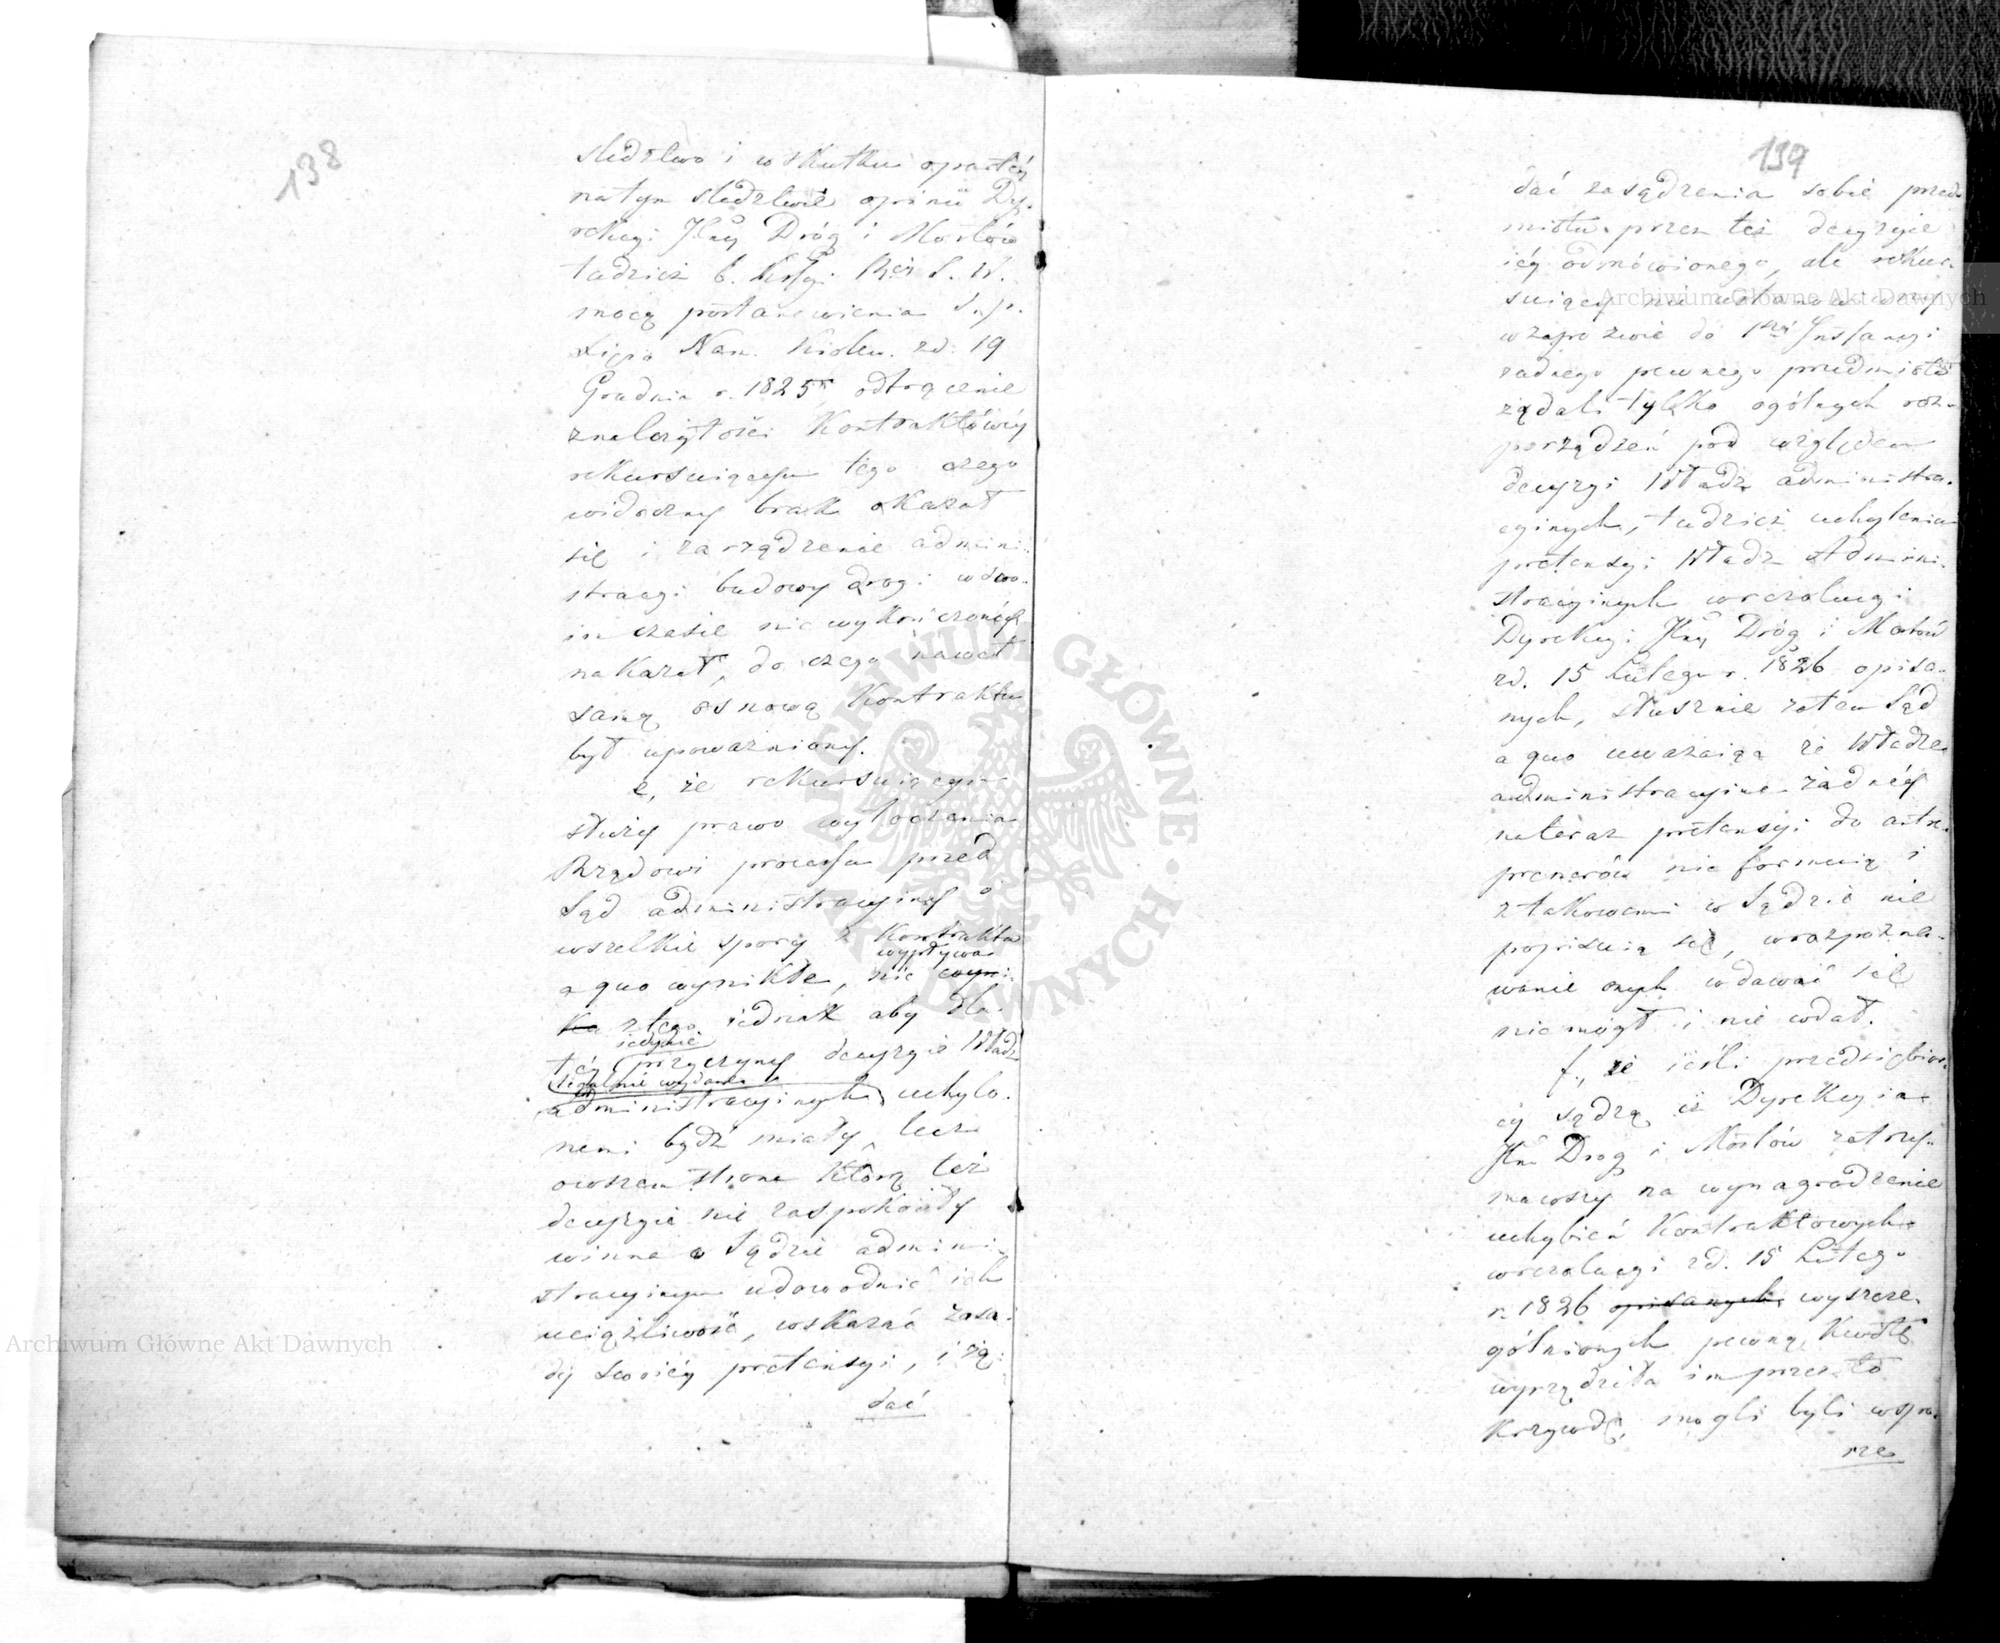 138
sledztwo i w skutku opartéy
natym sledztwie opinii Dy-
rekcyi Jlney Dróg i Mostów
tudzież b. Kssyi Rzą S. W.
mocą postanowienia ś. p.
Xięcia Nam. Królew. zd. 19
Grudnia r. 1825 odtrącenie
znależytości Kontraktowéy
rekursuiącym tego czego
widoczny brak okazał
się i zarządzenie admini-
stracyi budowy drogi wswo-
im czasie nie wykończonéy
nakazał, do czego nawet
samą osnową Kontraktu
był upoważniony.
e, że rekursuiącym
służy prawo wytoczenia
Rządowi processu przed
Sąd administracyiny o
wszelkie spory z Kontraktu
wypływa
a quo wynikłe, nie wyni-
ka z tego iednak aby dla
iedynie
téy przyczyny decyzyie Władz
legalnie wydane
administracyinych uchylo-
nemi bydź miały, lecz
owszem strona którą też
decyzyie nie zaspokoiły
winna w Sądzie admini-
stracyinym udowodnić ich
uciążliwość, wskazać zasa-
dy swoiéy pretensyi, i żą-
dać
139
dać zasądzenia sobie przed-
miotu przez też decyzyie
iéy odmówionego, ale rekur-
suiący nie wskazawszy
wzapozwie do 1széy Instancyi
żadnego pewnego przedmiotu
żądali tylko ogólnych roz-
porządzeń pod względem
decyzyi Władz administra-
cyinych, tudzież uchylenia
pretensyi Władz Admini-
stracyinych wrezolucyi
Dyrekcyi Jlney Dróg i Mostów
zd. 15 Lutego r. 1826 opisa-
nych, słusznie zatem Sąd
a quo uważaiąc że Władze
administracyine żadnéy
nateraz pretensyi do antre-
prenerów nie formuią i
z takowemi w Sądzie nie
popisuią się, wrozpozna-
wanie onych wdawać się
nie mógł i nie wdał.
f., że ieśli przedsiębior-
cy sądzą iż Dyrekcyia
Jlna Dróg i Mostów zatrzy-
mawszy na wynagrodzenie
uchybień Kontraktowych
wrezolucyi zd. 15 Lutego
r. 1826 opisanych wyszcze-
gólnionych pewną kwotę
wyrządziła im przez to
Krzywdę, mogli byli wspo-
rze
Archiwum Główne Akt Dawnych
Archiwum Główne Akt Dawnych
ARCHIWUM GŁÓWNE AKT DAWNYCH